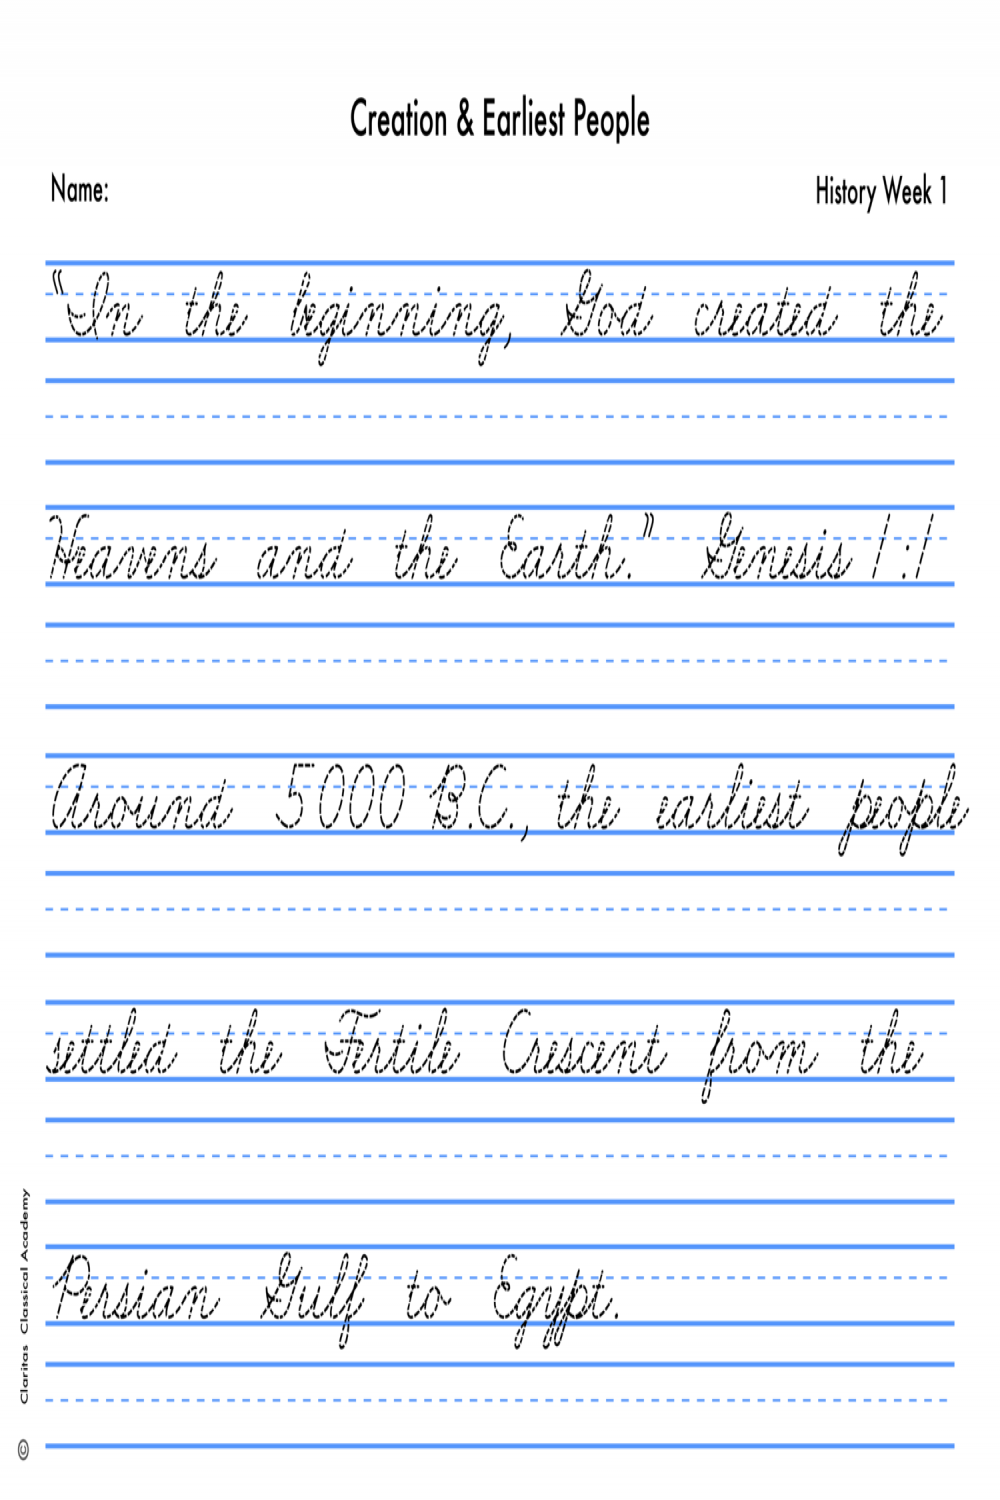 Creation & Earliest People
Name:
History Week 1
"In the beginning, God created the
Heavens and the Earth." Genesis 1:1
Around 5000 B.C., the earliest people
settled the Fertile Crescent from the
Persian Gulf to Egypt.
© Claritas Classical Academy